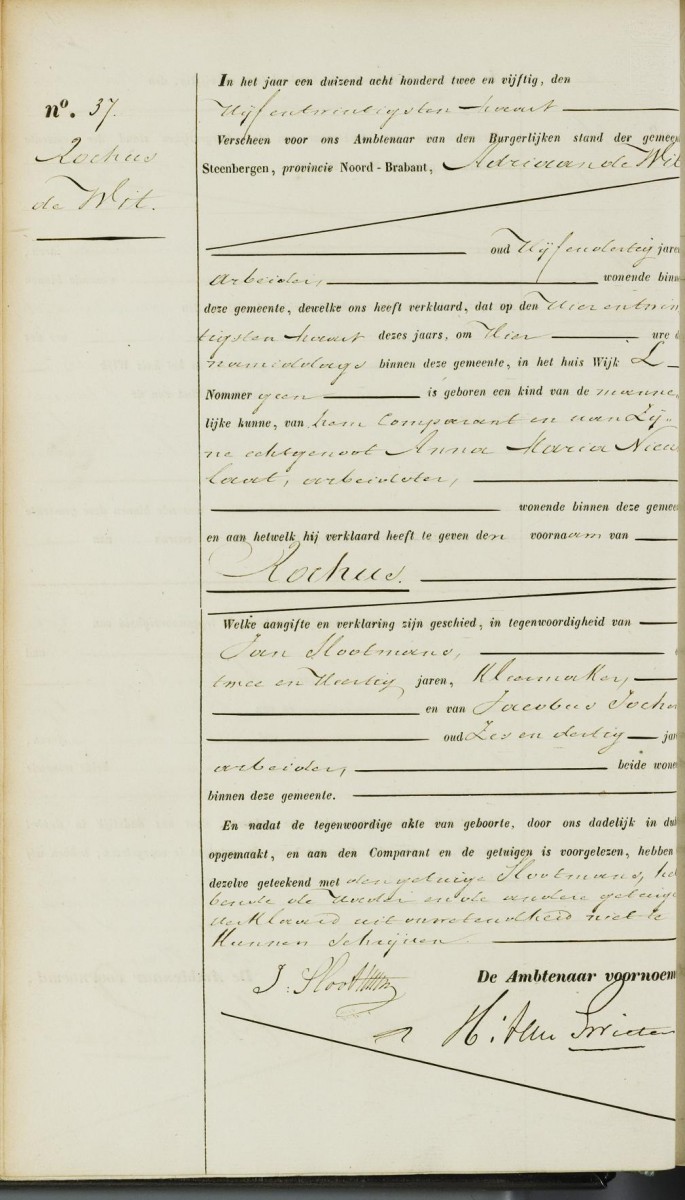 nº. 37.
Rochus
de Wit.
In het jaar een duizend acht honderd twee en vijftig, den
Vijfentwintigsten Maart
Verscheen voor ons Ambtenaar van den Burgerlijken stand der gemee
Steenbergen, provincie Noord-Brabant, Adriaan de Wit
oud Vijfendertig jaren
arbeider, wonende binn
deze gemeente, dewelke ons heeft verklaard, dat op den Vierentwin
tigsten Maart dezes jaars, om Vier ure d
namiddags binnen deze gemeente, in het huis Wijk L
Nommer geen is geboren een kind van de manne
lijke kunne, van hem Comparant en van Zij-
ne echtgenoot Anna Maria Nieu
laat, arbeidster,
wonende binnen deze gemee
en aan hetwelk hij verklaard heeft te geven den voornaam van
Rochus.
Welke aangifte en verklaring zijn geschied, in tegenwoordigheid van
Jan Slootmans,
twee en Veertig jaren, Kleermaker,
en van Jacobus
oud Zes en dertig jar
arbeider, beide wone
binnen deze gemeente.
En nadat de tegenwoordige akte van geboorte, door ons dadelijk in du
opgemaakt, en aan den Comparant en de getuigen is voorgelezen, hebben
dezelve geteekend met den getuige Slootmans, heb
bende de Vader en de andere getuige
verklaard uit onwetendheid niet te
Kunnen schrijven.
J. Slootmans
De Ambtenaar voornoem
H: van